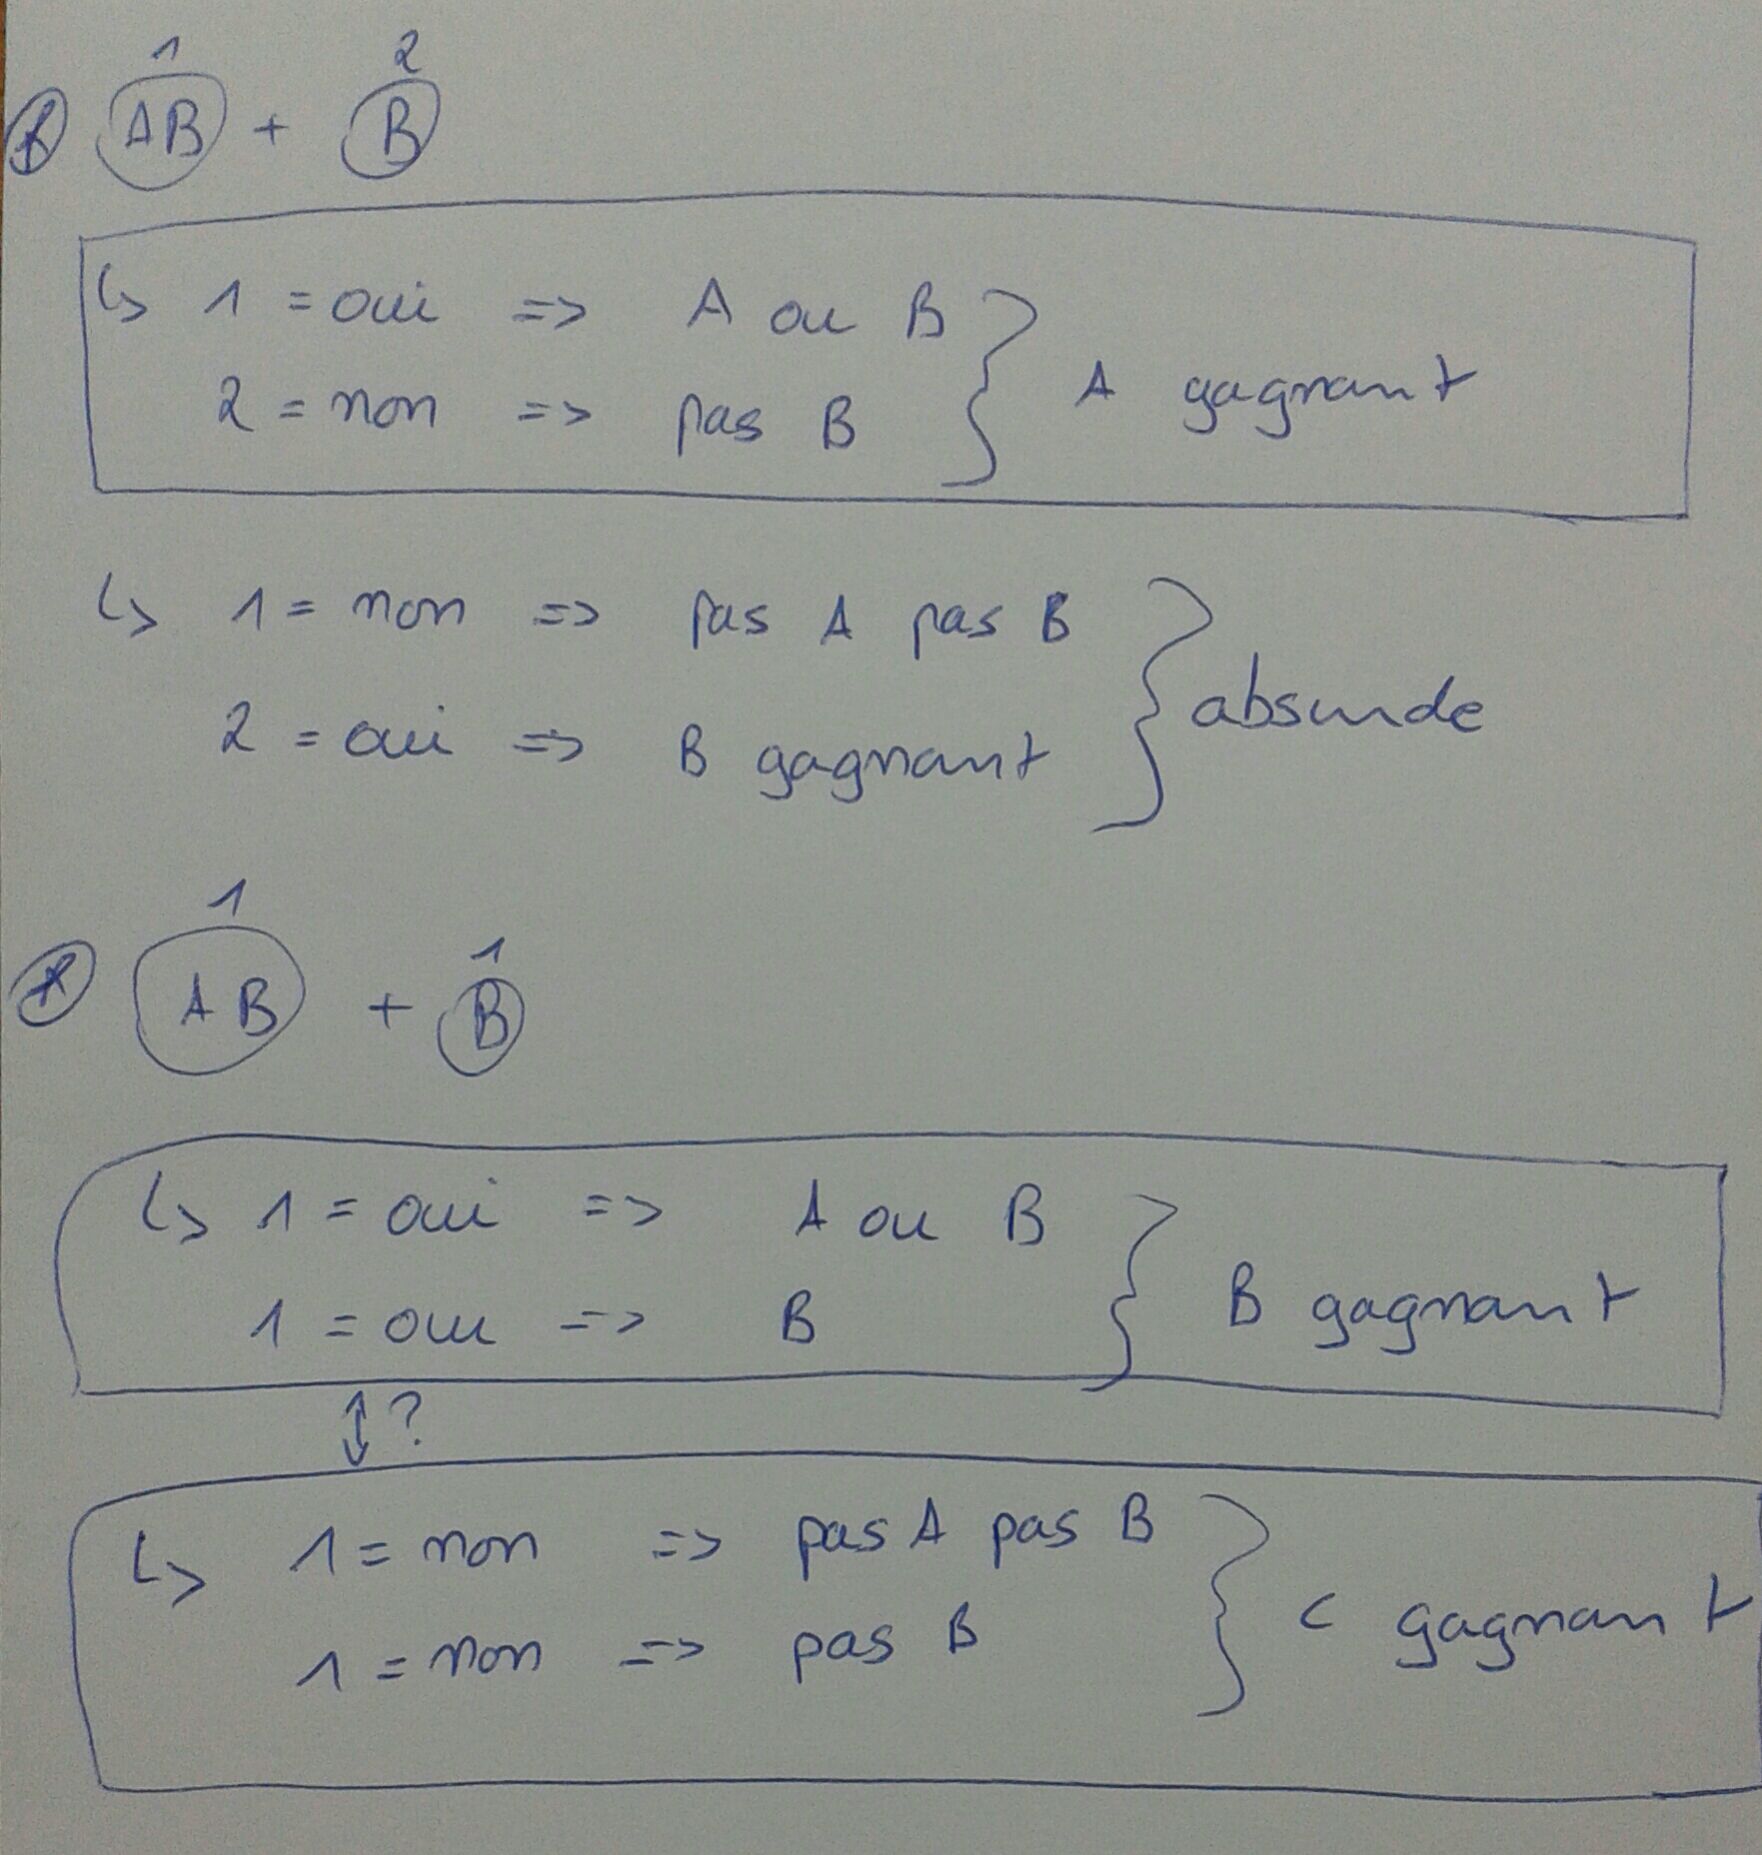 1 2
⊛ AB + B
↳ 1 = oui => A ou B
2 = non => pas B } A gagnant
↳ 1 = non => pas A pas B
2 = oui => B gagnant } absurde
1 1
⊛ AB + B
↳ 1 = oui => A ou B
1 = oui => B } B gagnant
↕ ?
↳ 1 = non => pas A pas B
1 = non => pas B } C gagnant